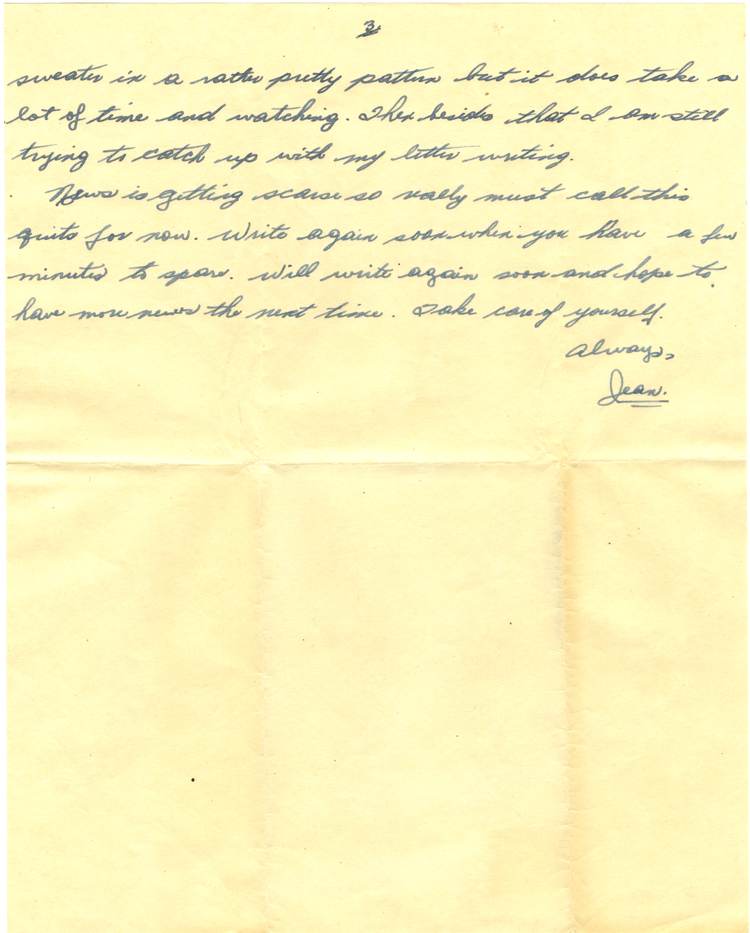 3
sweater in a rather pretty pattern but it does take a
lot of time and watching. Then besides that I am still
trying to catch up with my letter writing.
News is getting scarse so really must call this
quits for now. Write again soon when you have a few
minutes to spare. Will write again soon and hope to
have more news the next time. Take care of yourself.
Always,
Jean.